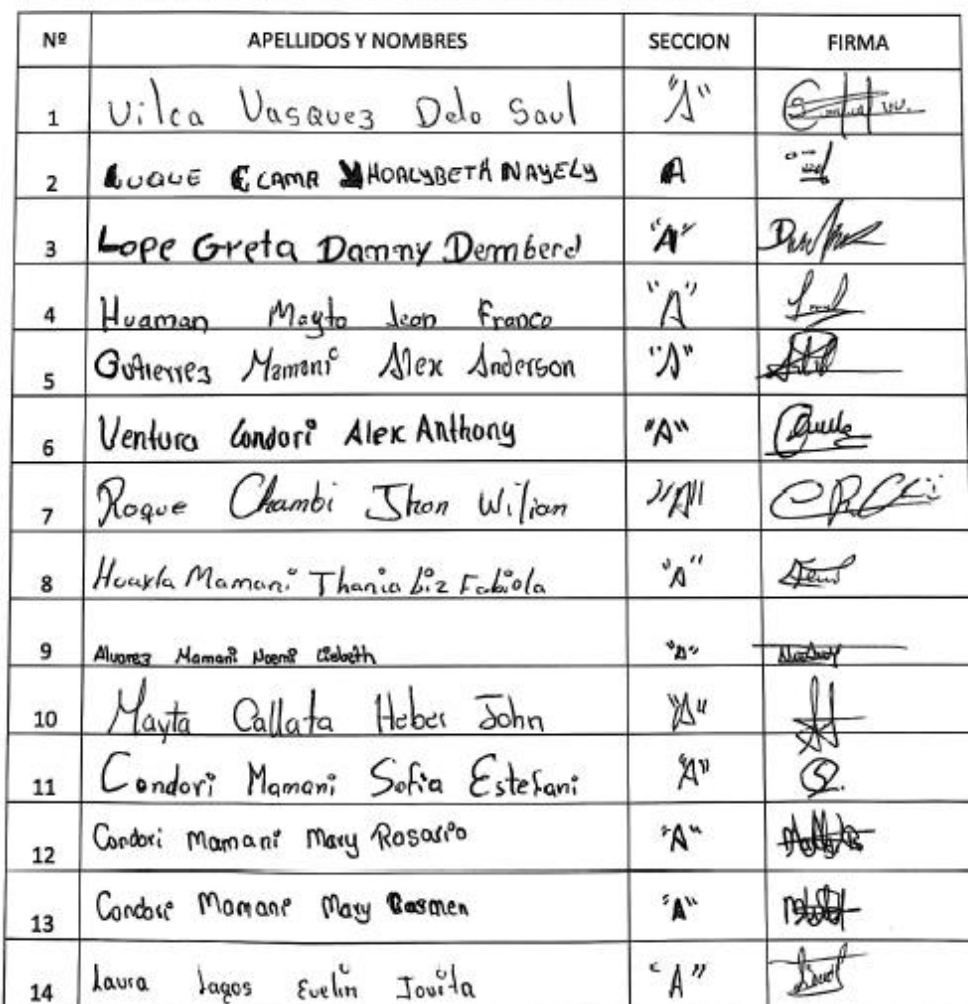 Nº APELLIDOS Y NOMBRES SECCION FIRMA
1 Vilca Vasquez Delo Saul "A"
2 LUQUE CCAMA YHORLYBETH NAYELY A
3 Lope Greta Dammy Demberd "A"
4 Huaman Mayto Jean Franco "A"
5 Gutierrez Mamani Alex Anderson "A"
6 Ventura Condori Alex Anthony "A"
7 Roque Chambi Jhon Wilian "A"
8 Mamani Thania Liz Fabiola "A"
9 Alvarez Mamani Noemi Lisbeth "A"
10 Mayta Callata Heber John "A"
11 Condori Mamani Sofia Estefani "A"
12 Condori Mamani Mary Rosario "A"
13 Condori Mamani Mary Carmen "A"
14 Laura Lagos Evelin Jovita "A"